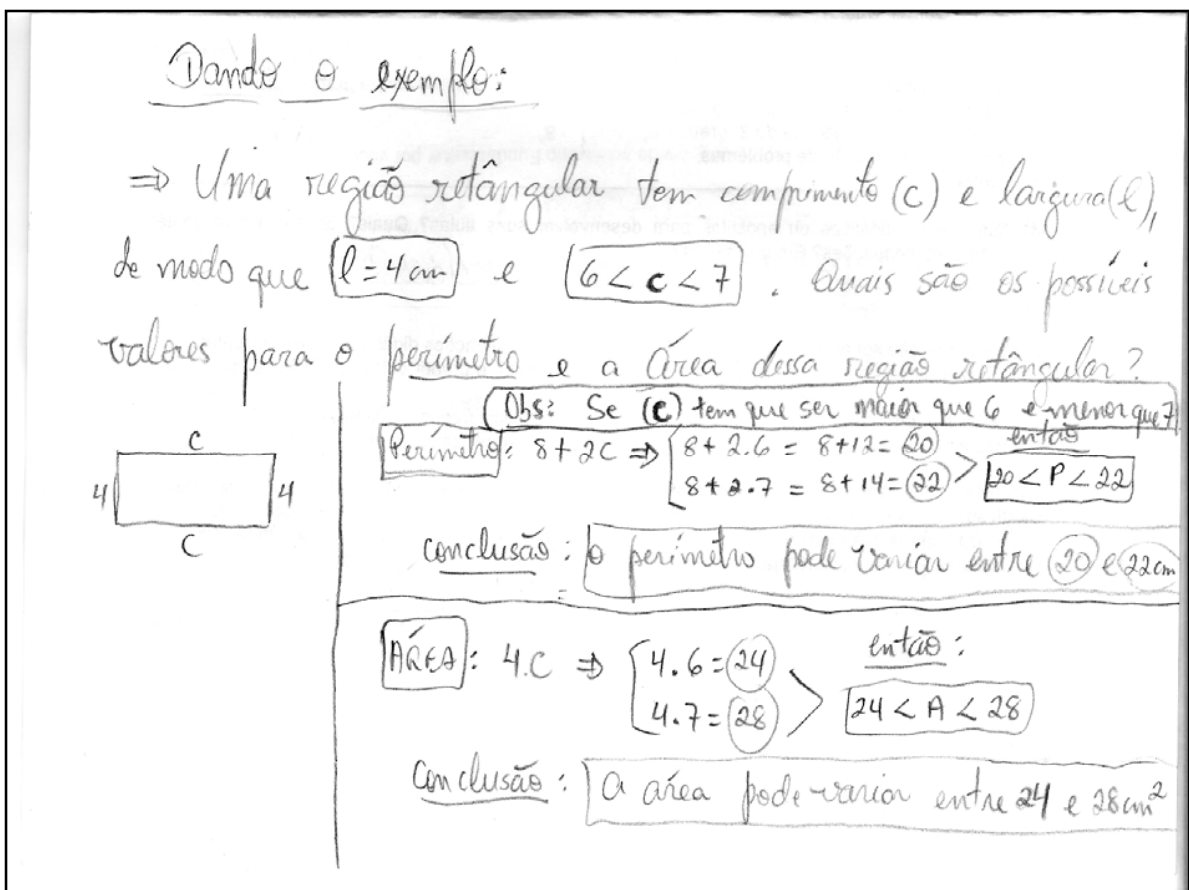 Dando o exemplo:
⇒ Uma região retângular tem comprimento (c) e largura (l),
de modo que l = 4 cm e 6 < c < 7 . Quais são os possíveis
valores para o perímetro e a área dessa região retângular?
Obs: Se (c) tem que ser maior que 6 e menor que 7
Perímetro: 8 + 2C ⇒ 8 + 2.6 = 8 + 12 = 20 então
8 + 2.7 = 8 + 14 = 22 > 20 < P < 22
C
4 4
C
conclusão: o perímetro pode variar entre 20 e 22cm
ÁREA: 4.C ⇒ 4.6 = 24 então:
4.7 = 28 > 24 < A < 28
Conclusão: a área pode variar entre 24 e 28cm²